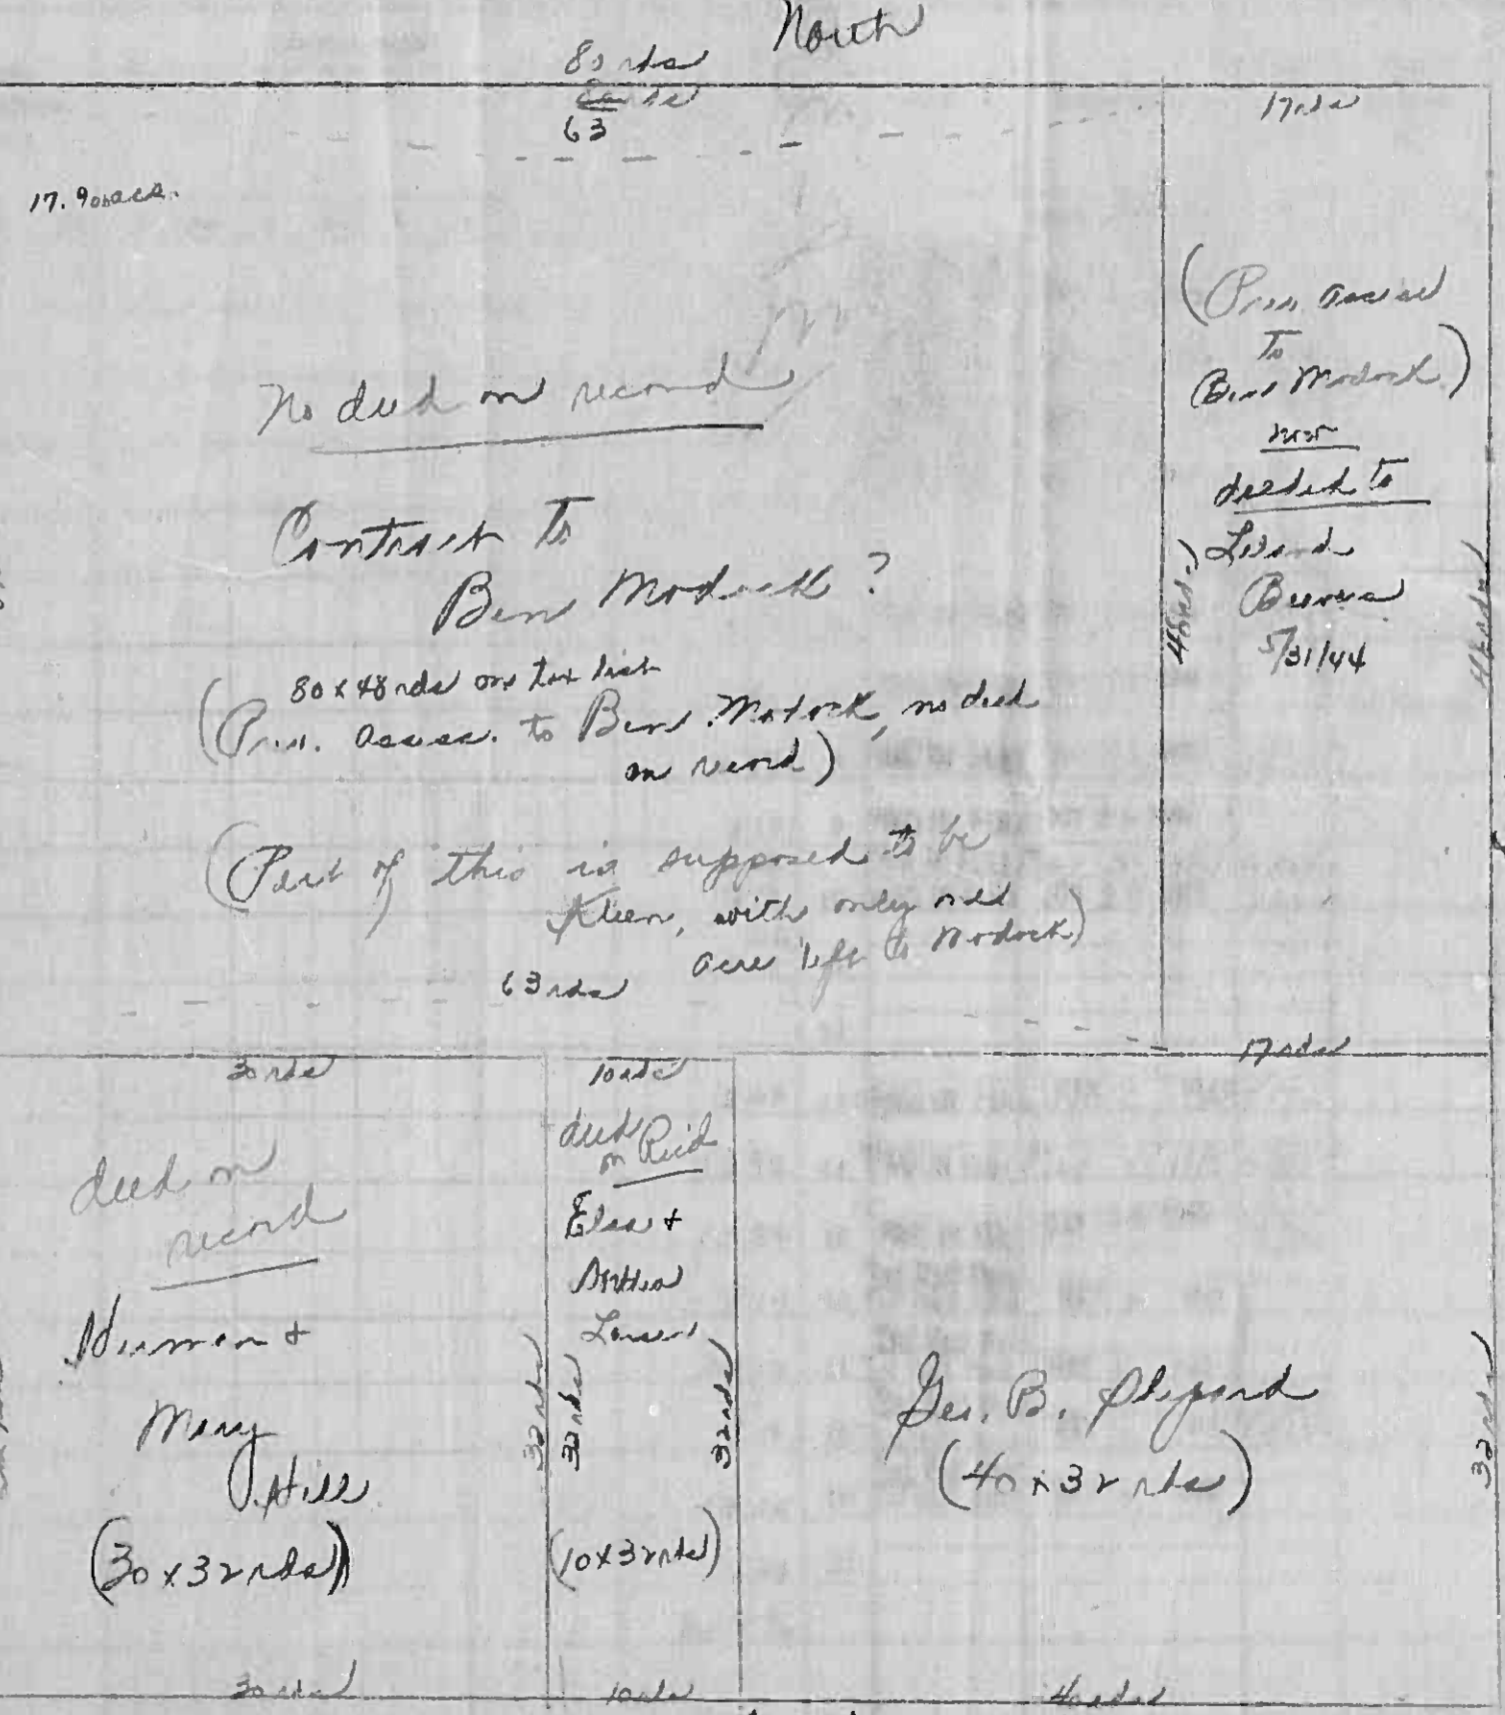 North
80 rds
80 rds
63
17 rds
17.90 acs.
No deed on record
Contract to
Ben Modock ?
80 x 48 rds on tax list
(Prev. Assess. to Ben Modock, no deed
on record)
(Part of this is supposed to be
Kleen, with only one
acre left to Modock)
63 rds
(Prev. assessed
To
Ben Modock)
now
deeded to
48 rds
5/31/44
48 rds
17 rds
30 rds
deed on
record
Herman &
Mary
Hill
(30 x 32 rds)
32 rds
30 rds
10 rds
deed
on Rec'd
Elsa &
32 rds
32 rds
(10 x 32 rds)
10 rds
Geo. B. Shepard
(40 x 32 rds)
32 rds
40 rds